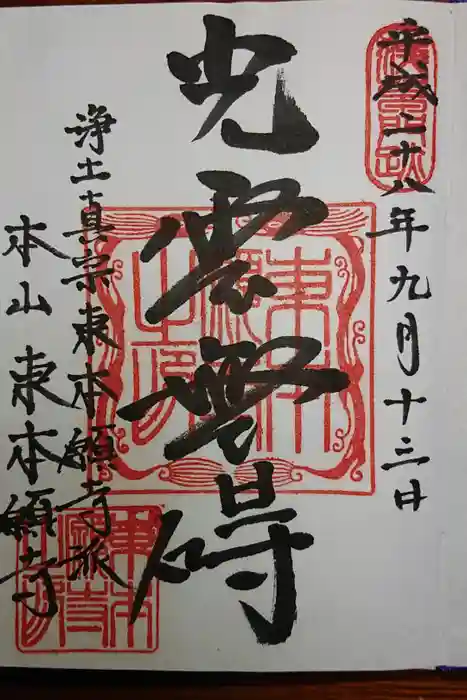 平成二十八年九月十三日
光雲無碍
浄土真宗東本願寺派
本山東本願寺